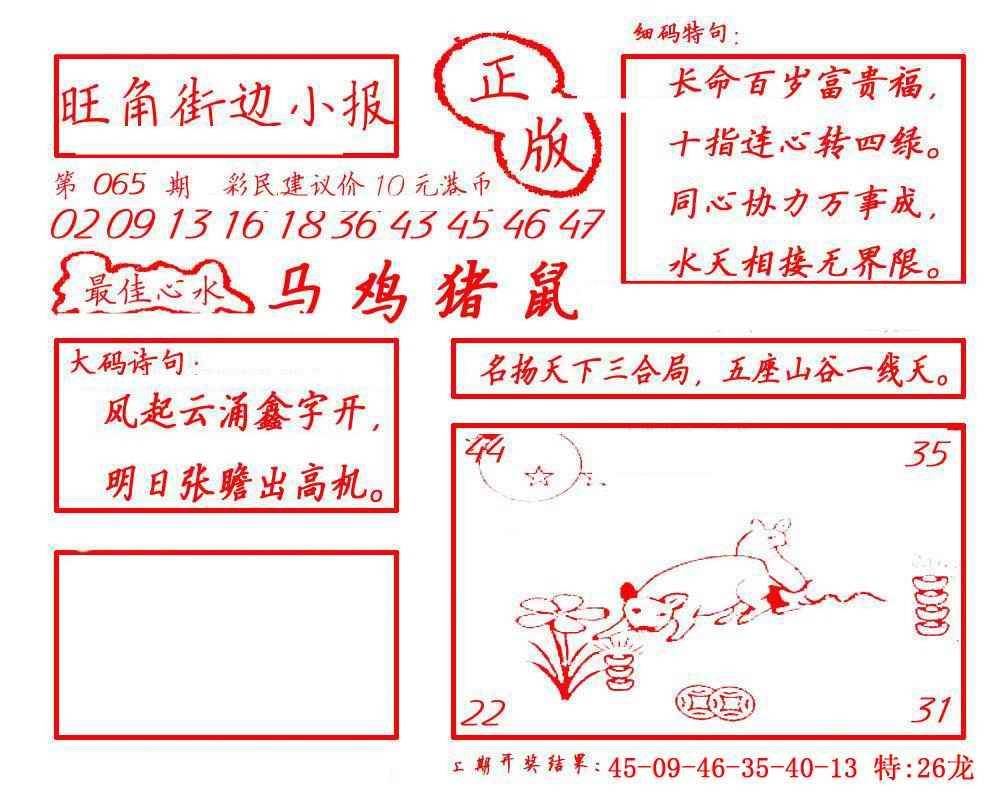 旺角街边小报
正版
第 065 期 彩民建议价 10 元港币
02 09 13 16 18 36 43 45 46 47
最佳心水 马 鸡 猪 鼠
细码特句:
长命百岁富贵福,
十指连心转四绿。
同心协力万事成,
水天相接无界限。
大码诗句:
风起云涌鑫字开,
明日张瞻出高机。
名扬天下三合局, 五座山谷一线天。
44 35
22 31
上期开奖结果: 45-09-46-35-40-13 特:26龙